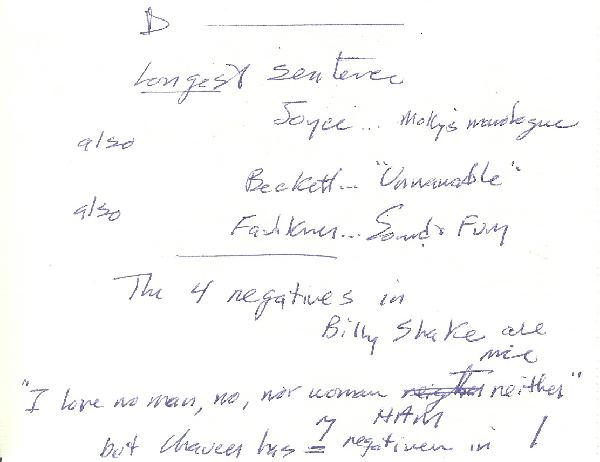 D
Longest sentence
Joyce... Molly's monologue
also
Beckett... "Unnamable"
also
Faulkner... Sound & Fury
The 4 negatives in
Billy Shake are
nice
"I love no man, no, nor woman neither"
HAM
but Chaucer has 7 negatives in 1